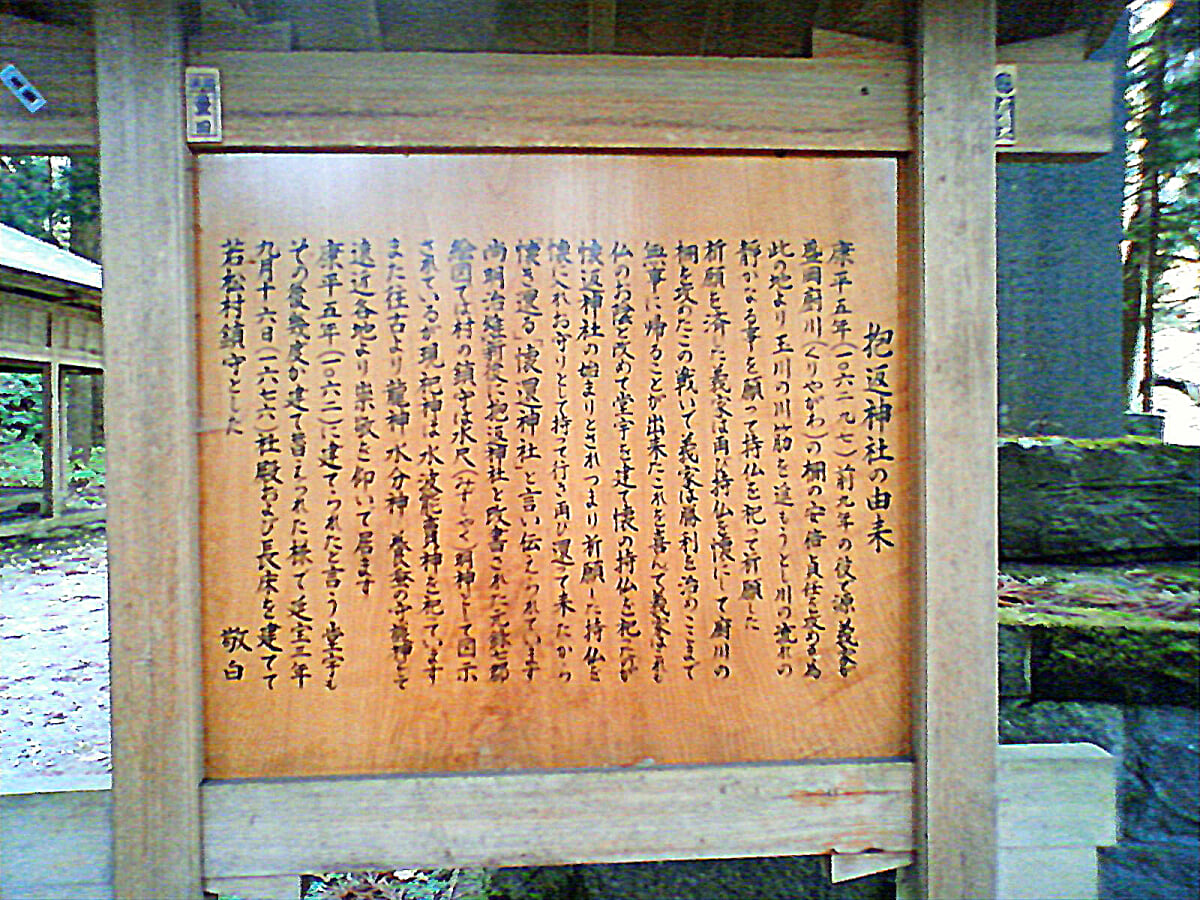 抱返神社の由来
康平五年(一〇六二九七)前九年の役で源義家が
盛岡厨川(くりやがわ)の柵の安倍貞任を攻める為
此の地より玉川の川筋を達もうとし川の流れの
静かなる事を願って持仏を祀って祈願した
祈願を済した義家は再び持仏を懐にして厨川の
柵を攻めたこの戦いで義家は勝利を治めここまで
無事に帰ることが出来たこれを喜んで義家はれも
仏のお陰と改めて堂宇を建て懐の持仏を祀たのが
懐返神社の始まりとされつまり祈願した持仏を
懐に入れお守りとして持って行き再び還て来たから
懐き還る「懐還神社」と言い伝えられています
尚明治維新後に抱返神社と改書された元禄の郡
絵図では村の鎮守は水尺(みずしやく)明神として図示
されているが現祀神は水波能賣神を祀っています
また往古より龍神 水分神 養蚕の守護神として
遠近各地より崇敬を仰いで居ます
康平五年(一〇六二)に建てられたと言う堂宇も
その後幾度か建て替えられた様で延宝三年
九月十六日(一六七六)社殿および長床を建てて
若松村鎮守とした
敬白